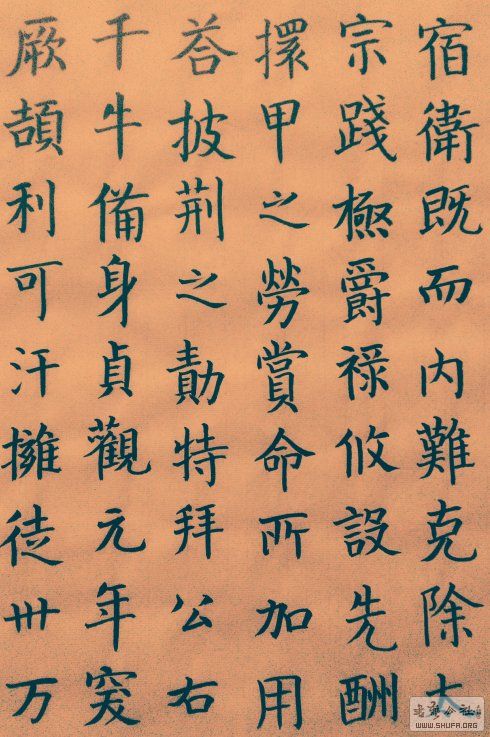 宿衛既而内難克除太
宗踐極爵禄攸設先酬
擐甲之勞賞命所加用
荅披荆之勣特拜公右
千牛備身貞觀元年突
厥頡利可汗擁徒卅万
WWW.SHUFA.ORG